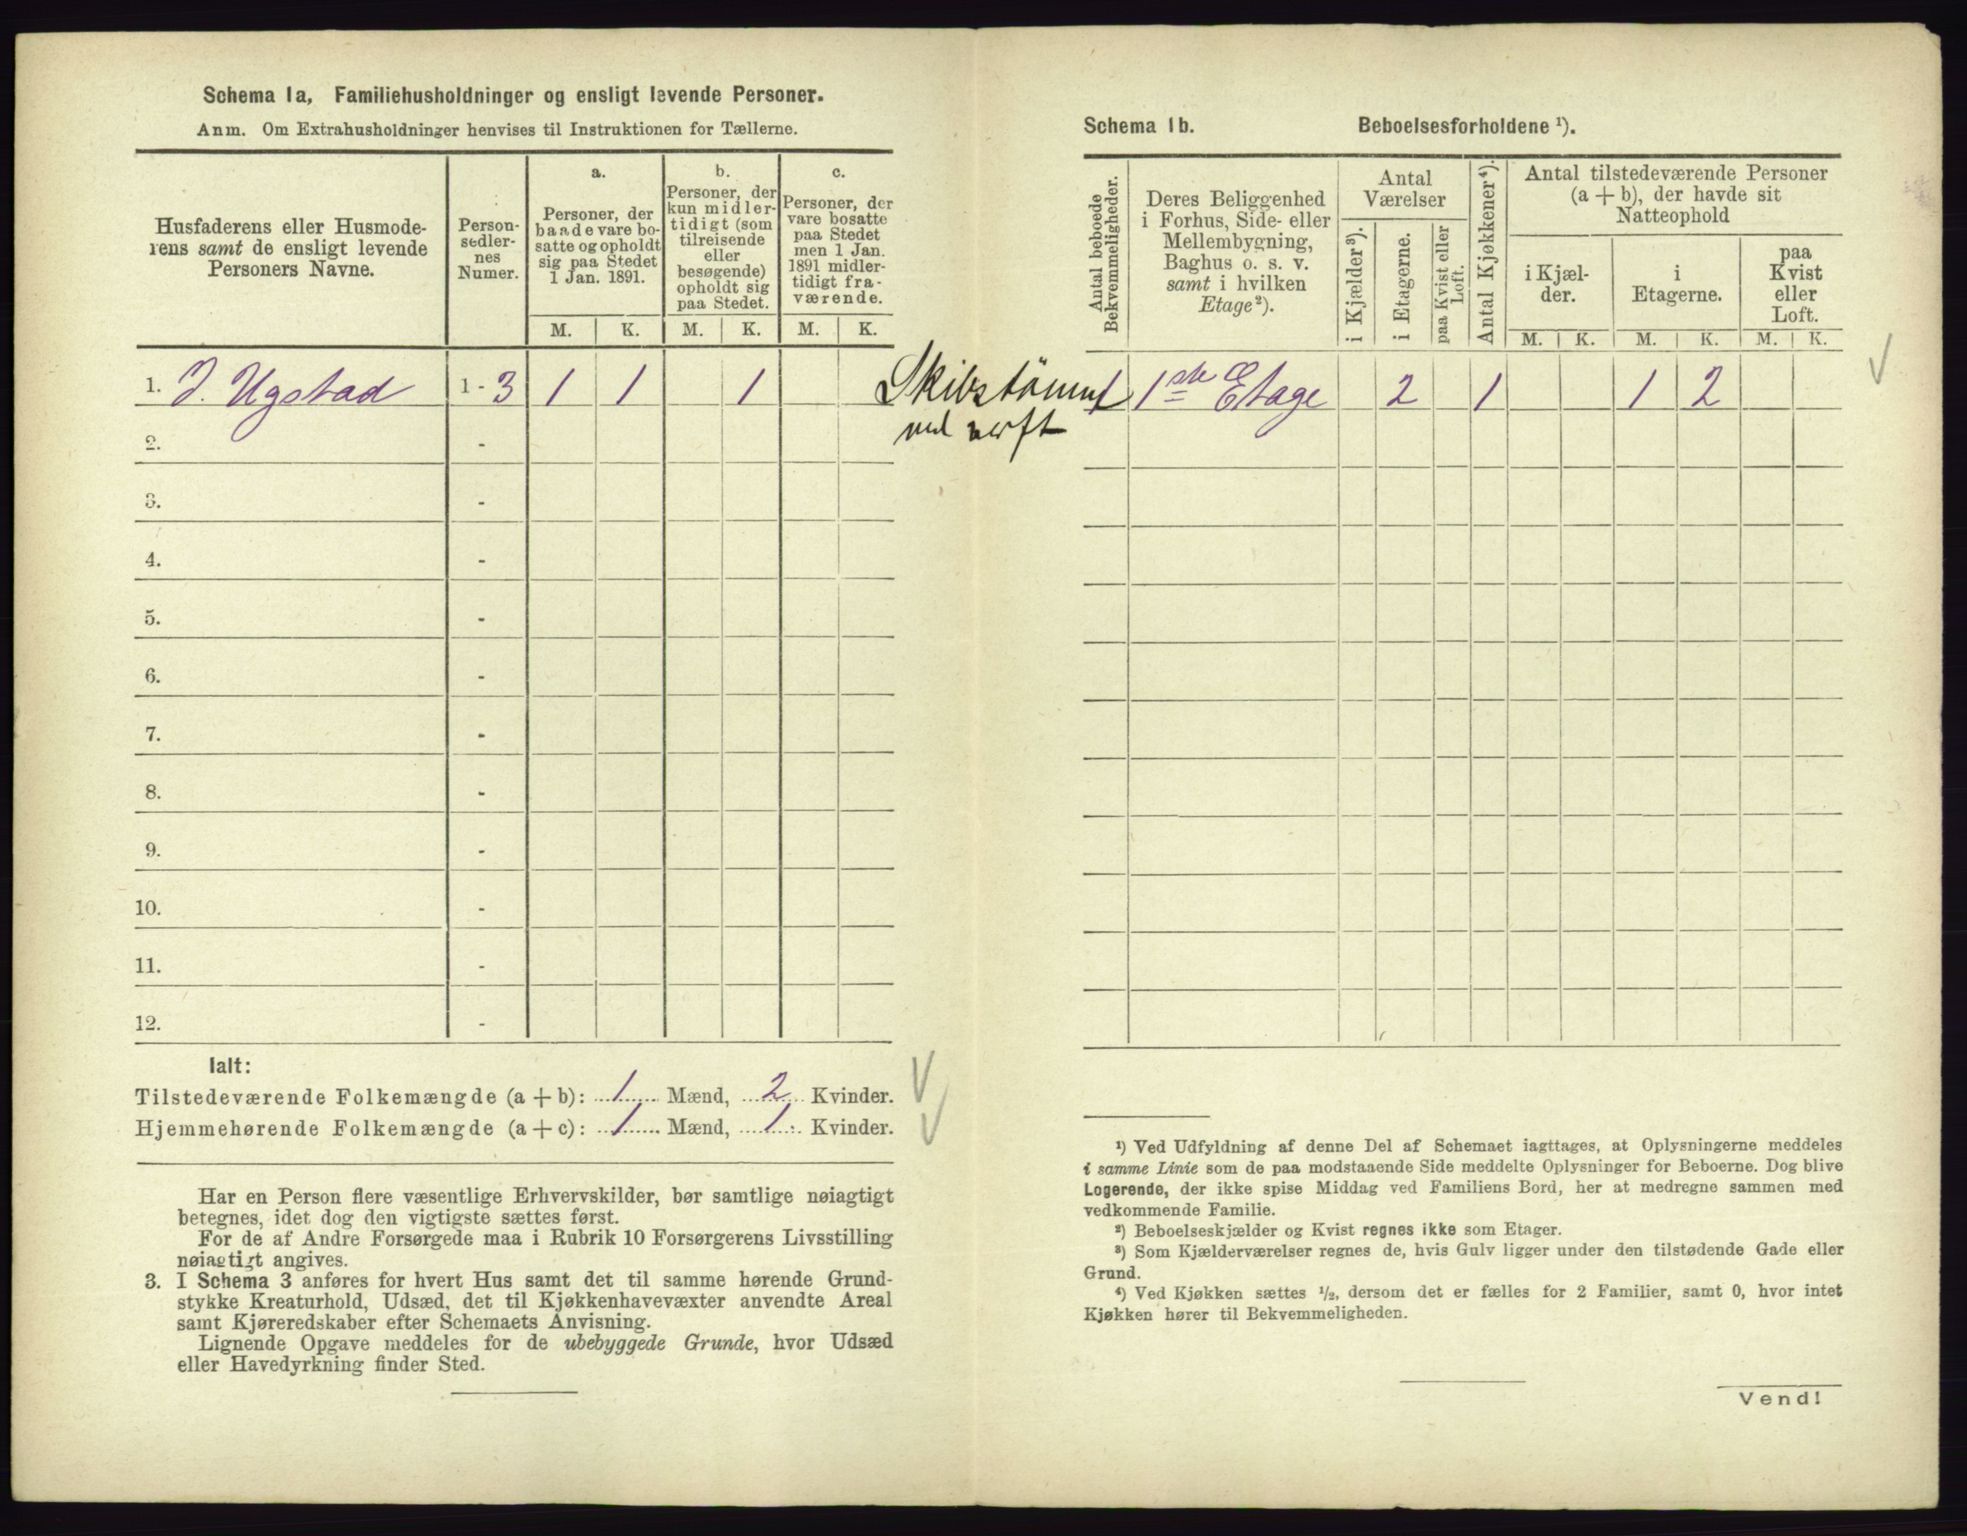 Schema 1a, Familiehusholdninger og ensligt levende Personer.
Anm. Om Extrahusholdninger henvises til Instruktionen for Tællerne.
Husfaderens eller Husmoderens samt de ensligt levende Personers Navne.
Personsedlernes Numer.
a.
Personer, der baade vare bosatte og opholdt sig paa Stedet 1 Jan. 1891.
b.
Personer, der kun midlertidigt (som tilreisende eller besøgende) opholdt sig paa Stedet.
c.
Personer, der vare bosatte paa Stedet men 1 Jan. 1891 midlertidigt fraværende.
M. K. M. K. M. K.
1. J. Ugstad 1 - 3 1 1 1
Skibstömmt
ved verft
2. -
3. -
4. -
5. -
6. -
7. -
8. -
9. -
10. -
11. -
12. -
Ialt:
Tilstedeværende Folkemængde (a + b): 1 Mænd, 2 Kvinder.
Hjemmehørende Folkemængde (a + c): 1 Mænd, 1 Kvinder.
Har en Person flere væsentlige Erhvervskilder, bør samtlige nøiagtigt
betegnes, idet dog den vigtigste sættes først.
For de af Andre Forsørgede maa i Rubrik 10 Forsørgerens Livsstilling
nøiagtigt angives.
3. I Schema 3 anføres for hvert Hus samt det til samme hørende Grund-
stykke Kreaturhold, Udsæd, det til Kjøkkenhavevæxter anvendte Areal
samt Kjøreredskaber efter Schemaets Anvisning.
Lignende Opgave meddeles for de ubebyggede Grunde, hvor Udsæd
eller Havedyrkning finder Sted.
Schema 1b. Beboelsesforholdene ¹).
Antal beboede Bekvemmeligheder.
Deres Beliggenhed i Forhus, Side- eller Mellembygning, Baghus o. s. v. samt i hvilken Etage²).
Antal Værelser
i Kjælder³).
i Etagerne.
paa Kvist eller Loft.
Antal Kjøkkener⁴).
Antal tilstedeværende Personer (a + b), der havde sit Natteophold
i Kjælder.
i Etagerne.
paa Kvist eller Loft.
M. K. M. K. M. K.
1 1ste Etage 2 1 1 2
¹) Ved Udfyldning af denne Del af Schemaet iagttages, at Oplysningerne meddeles
i samme Linie som de paa modstaaende Side meddelte Oplysninger for Beboerne. Dog blive
Logerende, der ikke spise Middag ved Familiens Bord, her at medregne sammen med
vedkommende Familie.
²) Beboelseskjælder og Kvist regnes ikke som Etager.
³) Som Kjælderværelser regnes de, hvis Gulv ligger under den tilstødende Gade eller
Grund.
⁴) Ved Kjøkken sættes ½, dersom det er fælles for 2 Familier, samt 0, hvor intet
Kjøkken hører til Bekvemmeligheden.
Vend!